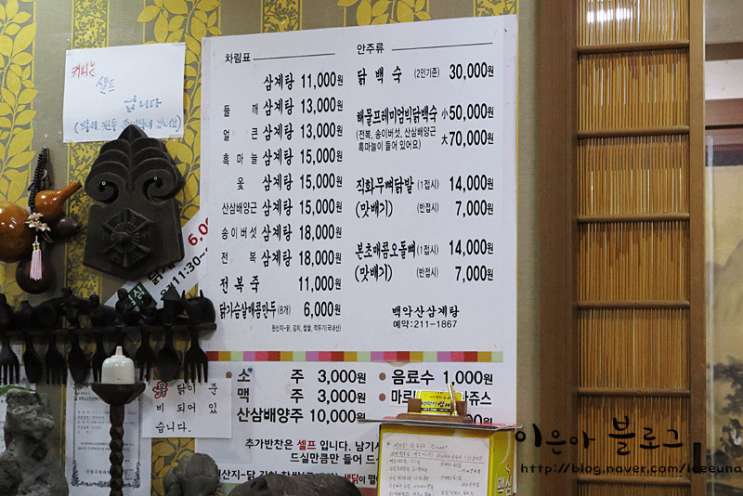 커피는
셀프
입니다
차림표
삼계탕 11,000원
들깨 삼계탕 13,000원
얼큰 삼계탕 13,000원
흑마늘 삼계탕 15,000원
옻 삼계탕 15,000원
산삼배양근 삼계탕 15,000원
송이버섯 삼계탕 18,000원
전복 삼계탕 18,000원
전복죽 11,000원
닭가슴살매콤만두(8개) 6,000원
원산지-닭, 김치, 찹쌀, 깍두기(국내산)
안주류
닭백숙 (2인기준) 30,000원
해물프레미엄빅닭백숙 小50,000원
(전복, 송이버섯, 산삼배양근 大70,000원
흑마늘이 들어 있어요)
직화무뼈닭발 (1접시) 14,000원
(맛배기) (반접시) 7,000원
본초매콤오돌뼈 (1접시) 14,000원
(맛배기) (반접시) 7,000원
백악산삼계탕
예약:211-1867
소주 3,000원
맥주 3,000원
산삼배양주 10,000원
음료수 1,000원
추가반찬은 셀프 입니다. 남기시
드실만큼만 들어 드시
6,0
11:30~
닭이 준
비 되어 있
습니다.
이은아 블로그
http://blog.naver.com/leeeuna